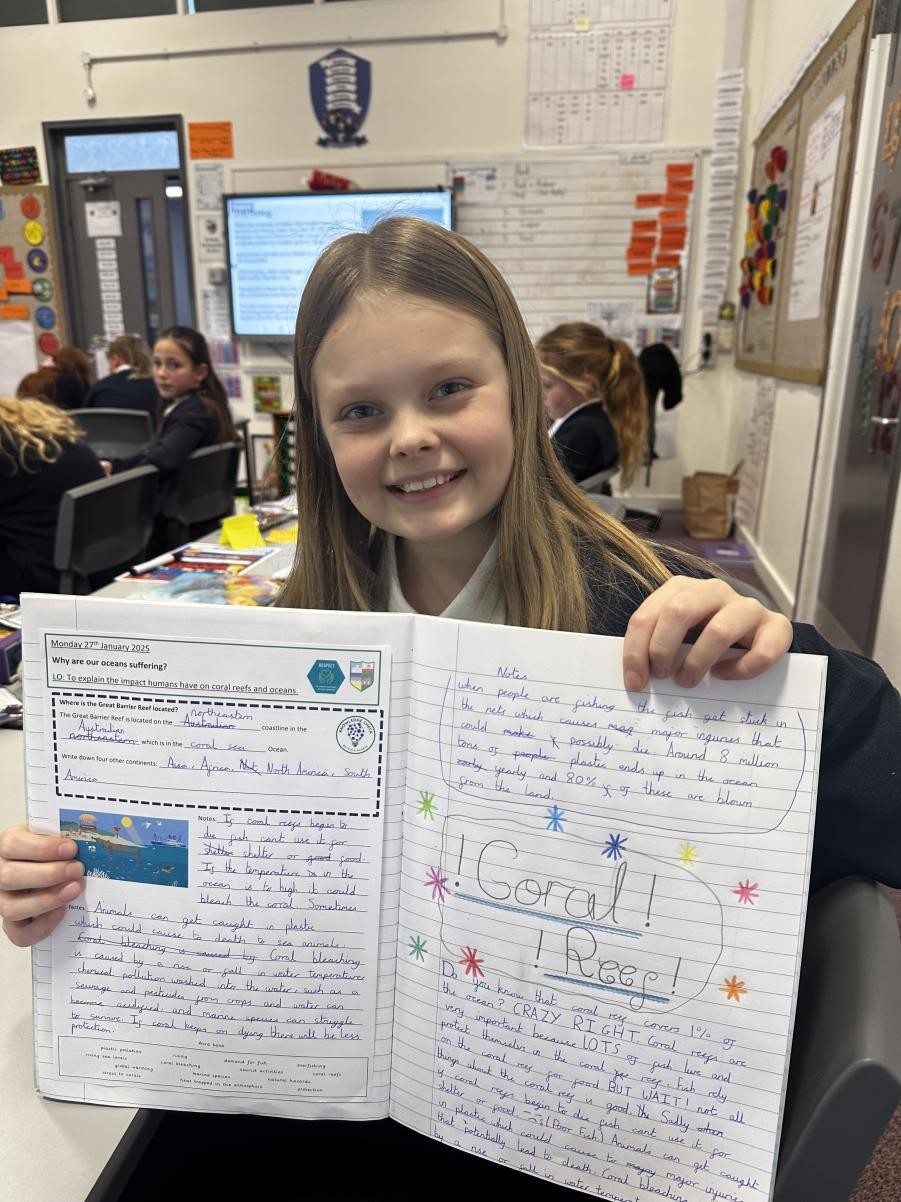 RESPECT
Monday 27th January 2025
Why are our oceans suffering?
LO: To explain the impact humans have on coral reefs and oceans.
Where is the Great Barrier Reef located?
northeastern
The Great Barrier Reef is located on the Australian coastline in the
Australian
northeastern which is in the coral sea Ocean.
KNOWLEDGE CHECK
Write down four other continents: Aisa, Africa, Not North America, South
America
Notes: If coral reefs begin to
die fish cant use it for
shelter or good food.
If the temperature is in the
ocean is to high it could
bleach the coral. Sometimes
Notes: Animals can get caught in plastic
which could cause to death to sea animals.
Coral bleaching is caused by Coral bleaching
is caused by a rise or fall in water temperature
chemical pollution washed into the water, such as a
sewage and pesticides from crops and water can
become acidified, and marine species can struggle
to survive. If coral keeps on dying there will be less
protection.
Word bank
plastic pollution rising demand for fish overfishing
rising sea levels coral bleaching tourist activities coral reefs
global warming marine species natural hazards
stress to corals heat trapped in the atmosphere protection
Notes
when people are fishing the fish get stuck in
the nets which causes major injuries that
could make possibly die. Around 8 million
tons of people plastic ends up in the ocean
early yearly and 80% of these are blown
from the land.
!Coral!
!Reef!
Do you know that coral reef covers 1% of
the ocean? CRAZY RIGHT. Coral reefs are
very important because LOTS of fish live and
protect themselves in the coral reef. Fish rely
on the coral reef for food BUT WAIT! not all
things about the coral reef is good. Sadly when
if coral reefs begin to die fish cant use it for
shelter or food. (Poor Fish) Animals can get caught
in plastic which could cause to major injury
that potentially lead to death. Coral bleaching
by a rise or fall in water